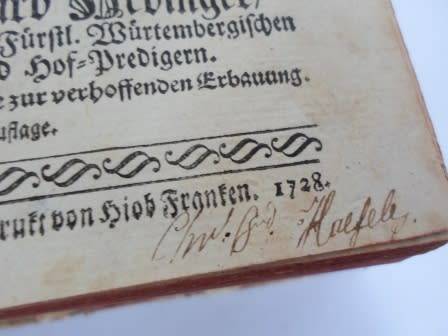 Hedinger/
Fürstl. Würtembergischen
Hof-Predigern.
zur verhoffenden Erbauung.
uflage.
rukt von Hiob Franken. 1728.
Haefele.